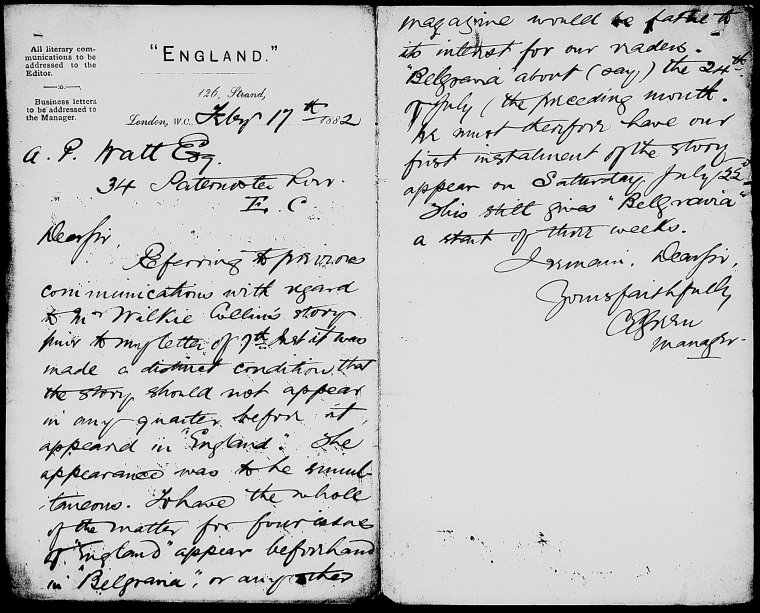 All literary com-
munications to be
addressed to the
Editor.
Business letters
to be addressed to
the Manager.
"ENGLAND."
126, Strand,
London, W.C. Feby 17th 1882
A. P. Watt Esq.
34 Paternoster Row.
E. C
Dear Sir,
Referring to previous
communications with regard
to Mr Wilkie Collins story
prior to my letter of 7th Inst it was
made a distinct condition that
the story should not appear
in any quarter before it
appeared in "England". The
appearance was to be simul-
taneous. To have the whole
of the matter for four issues
of "England" appear beforehand
in "Belgravia", or any other
magazine would be fatal to
its interest for our readers.
"Belgravia" about (say) the 24th
of July (the preceding month.
We must therefore have our
first instalment of the story
appear on Saturday July 22d
This still gives "Belgravia"
a start of three weeks.
I remain, Dear Sir,
Yours faithfully
manager.